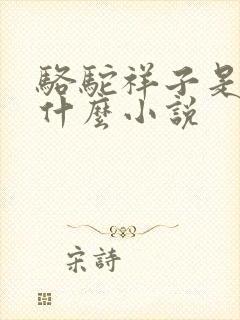 駱駝祥子是
什麼小說
宋詩